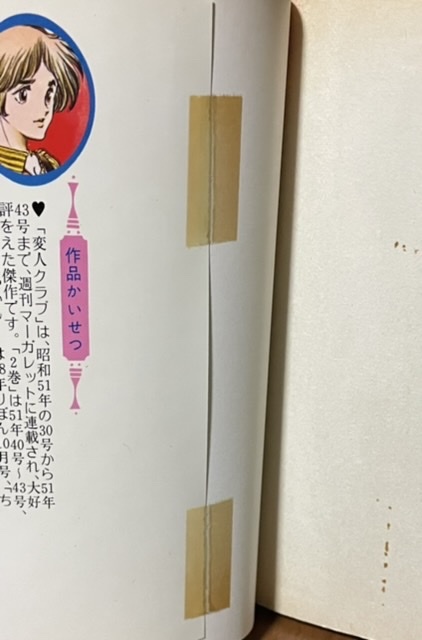 作品かいせつ
♥「変人クラブ」は、昭和51年の30号から51年
43号まで、週刊マーガレットに連載され、大好
評をえた傑作です。「2巻」は51年40号～43号、